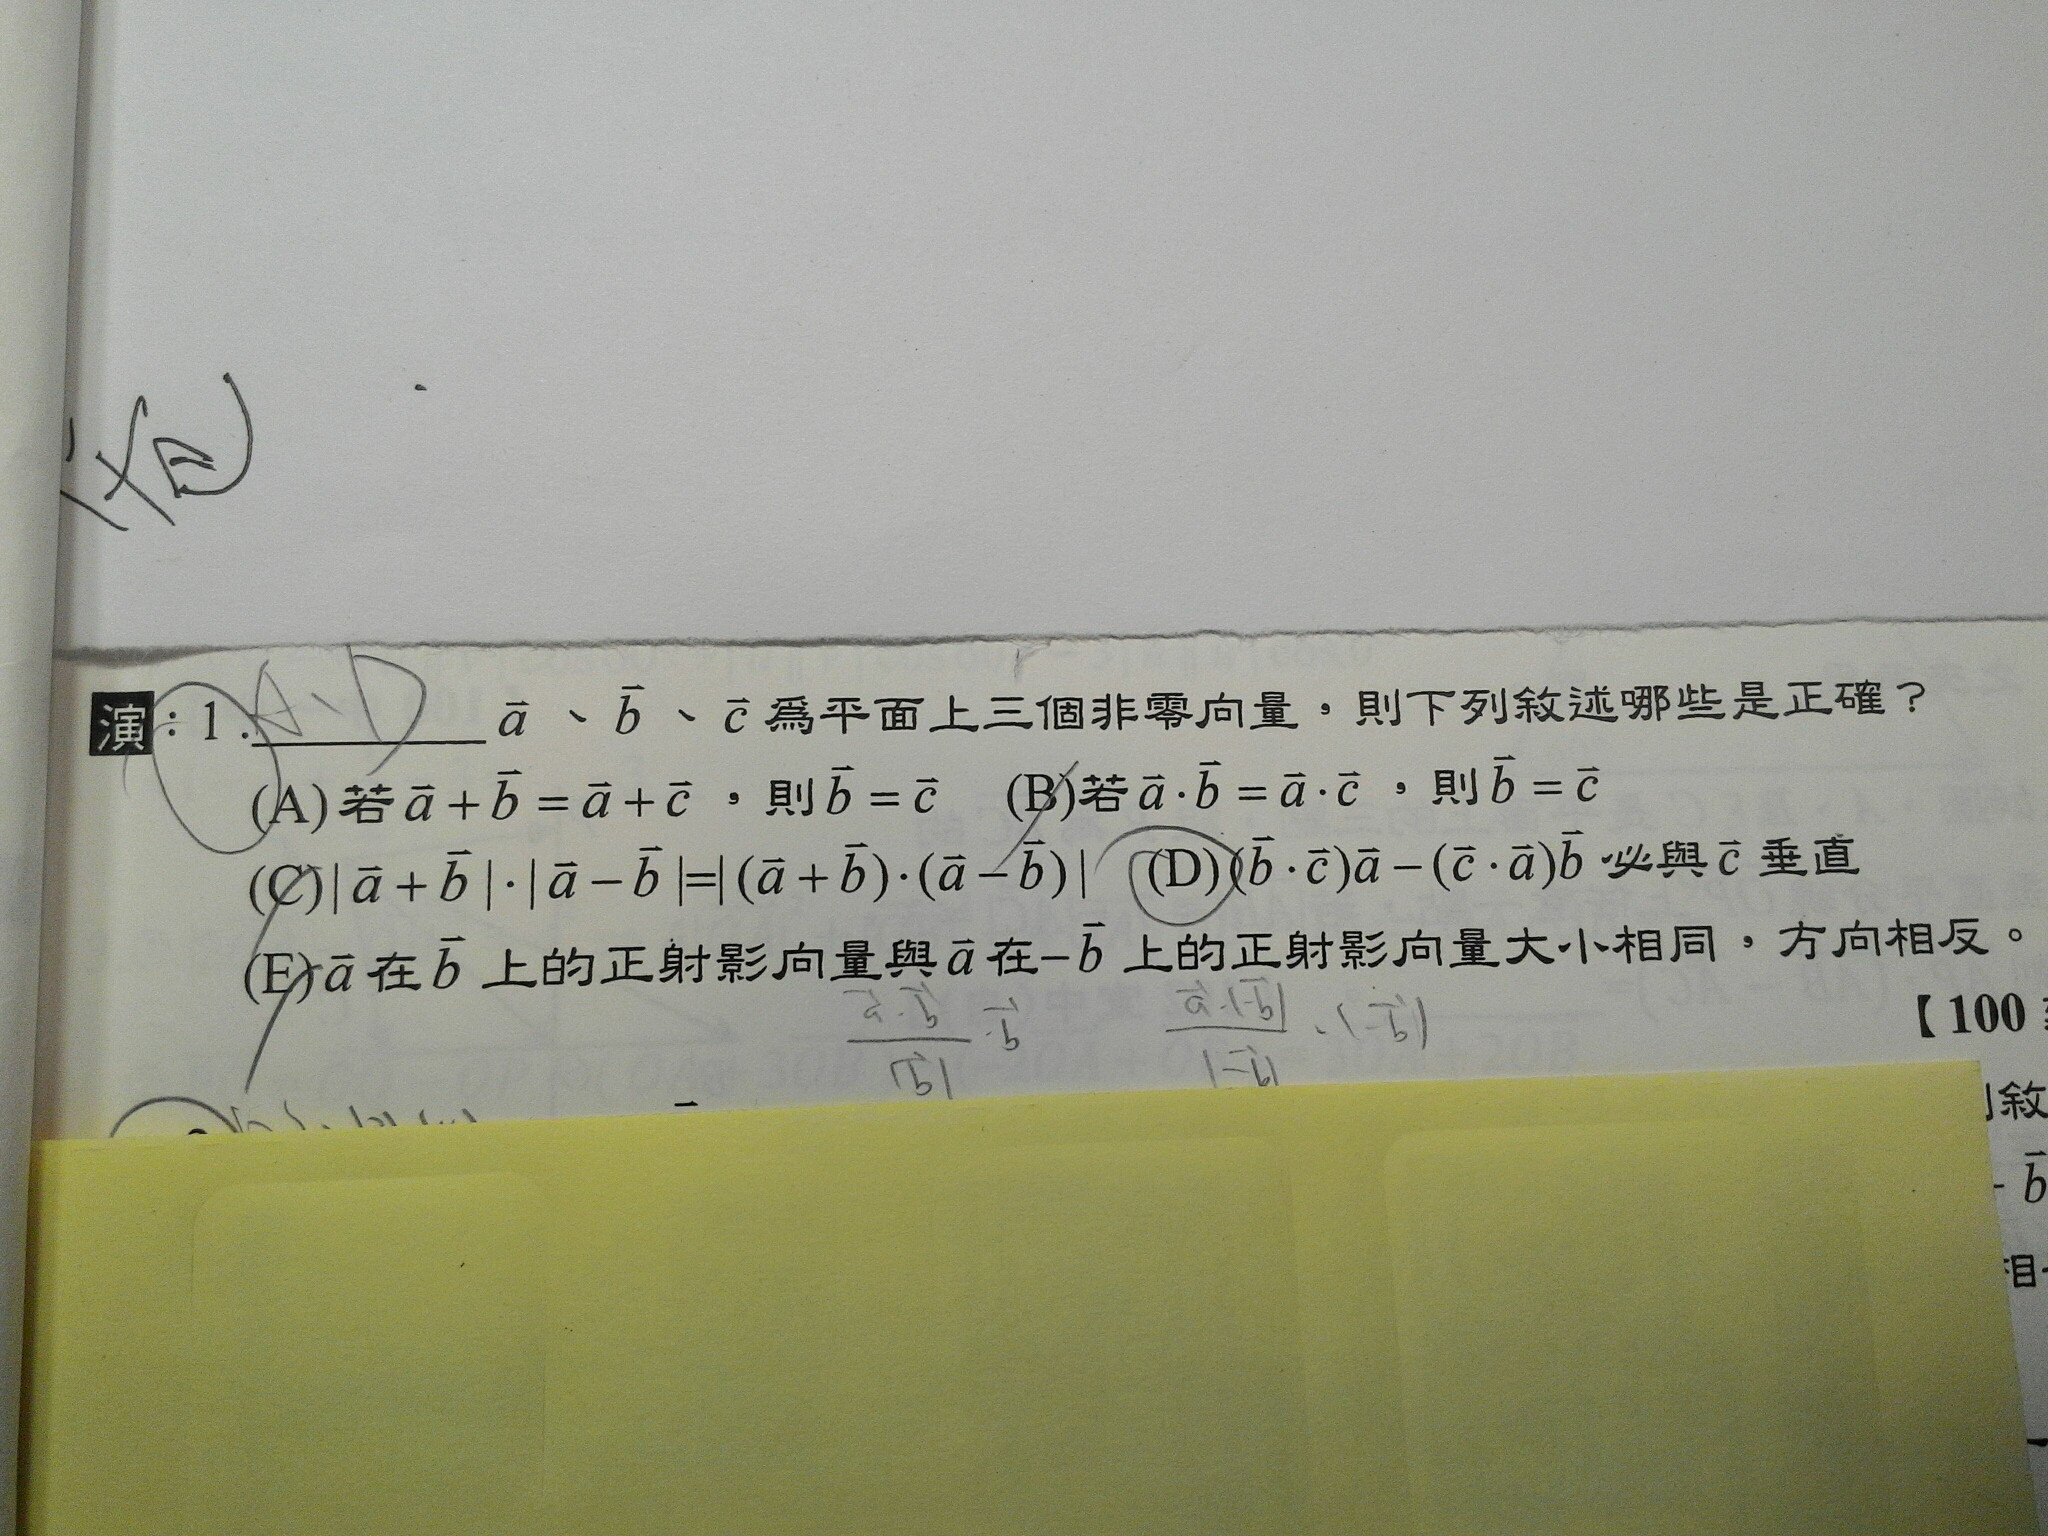 包
演:1. A、D $\vec{a}$、$\vec{b}$、$\vec{c}$ 為平面上三個非零向量，則下列敘述哪些是正確？
(A)若 $\vec{a}+\vec{b}=\vec{a}+\vec{c}$ ，則 $\vec{b}=\vec{c}$ (B)若 $\vec{a}\cdot\vec{b}=\vec{a}\cdot\vec{c}$ ，則 $\vec{b}=\vec{c}$
(C) $|\vec{a}+\vec{b}|\cdot|\vec{a}-\vec{b}|=|(\vec{a}+\vec{b})\cdot(\vec{a}-\vec{b})|$ (D) $(\vec{b}\cdot\vec{c})\vec{a}-(\vec{c}\cdot\vec{a})\vec{b}$ 必與 $\vec{c}$ 垂直
(E) $\vec{a}$ 在 $\vec{b}$ 上的正射影向量與 $\vec{a}$ 在 $-\vec{b}$ 上的正射影向量大小相同，方向相反。
【100
敘
$-\vec{b}$
相